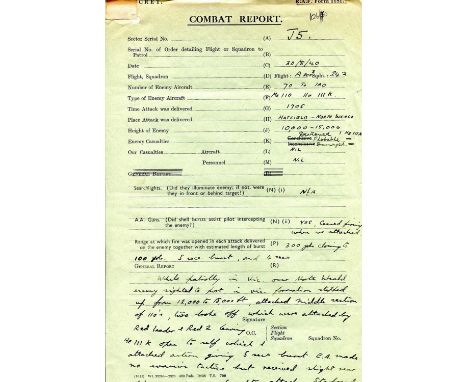 CRET.
R.A.F. Form 1151.
COMBAT REPORT.
Sector Serial No. (A) J5.
Serial No. of Order detailing Flight or Squadron to
Patrol (B)
Date (C) 30/8/40
Flight, Squadron (D) Flight: A Sqdn.
Number of Enemy Aircraft (E) 70 to 100
Type of Enemy Aircraft (F) Me 110 He 111 K
Time Attack was delivered (G) 1705
Place Attack was delivered (H) Hatfield - North Weald
Height of Enemy (J) 10000 - 15,000
Enemy Casualties (K) Probable
Our Casualties Aircraft (L) Nil
Personnel (M) Nil
General Report (R)
Searchlights. (Did they illuminate enemy; if not, were
they in front or behind target?) (N) (i) N/A
A.A. Guns. (Did shell bursts assist pilot intercepting
the enemy?) (N) (ii) Yes ceased firing
when we attacked
Range at which fire was opened in each attack delivered
on the enemy together with estimated length of burst (P) 300 yds closing to
100 yds. 5 secs burst, and 4 secs
General Report (R)
While patrolly in Vic. over North Weald
enemy sighted to port in vic formation stepped
up from 12,000 to 15000 ft, attacked middle section
of 110's, two broke off which were attacked by
Signature
Red leader & Red 2 leaving
O.C. Section
Flight
Squadron Squadron No.
He 111 K open to self which I
attached giving 5 secs burst E.A. made
no evasive tactics but received slight